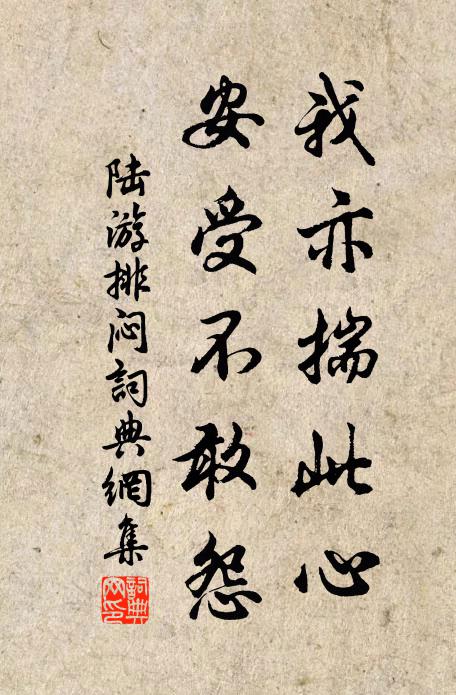 我亦揣此心
安受不敢怨
陆游排闷詞典網集
詞典網印